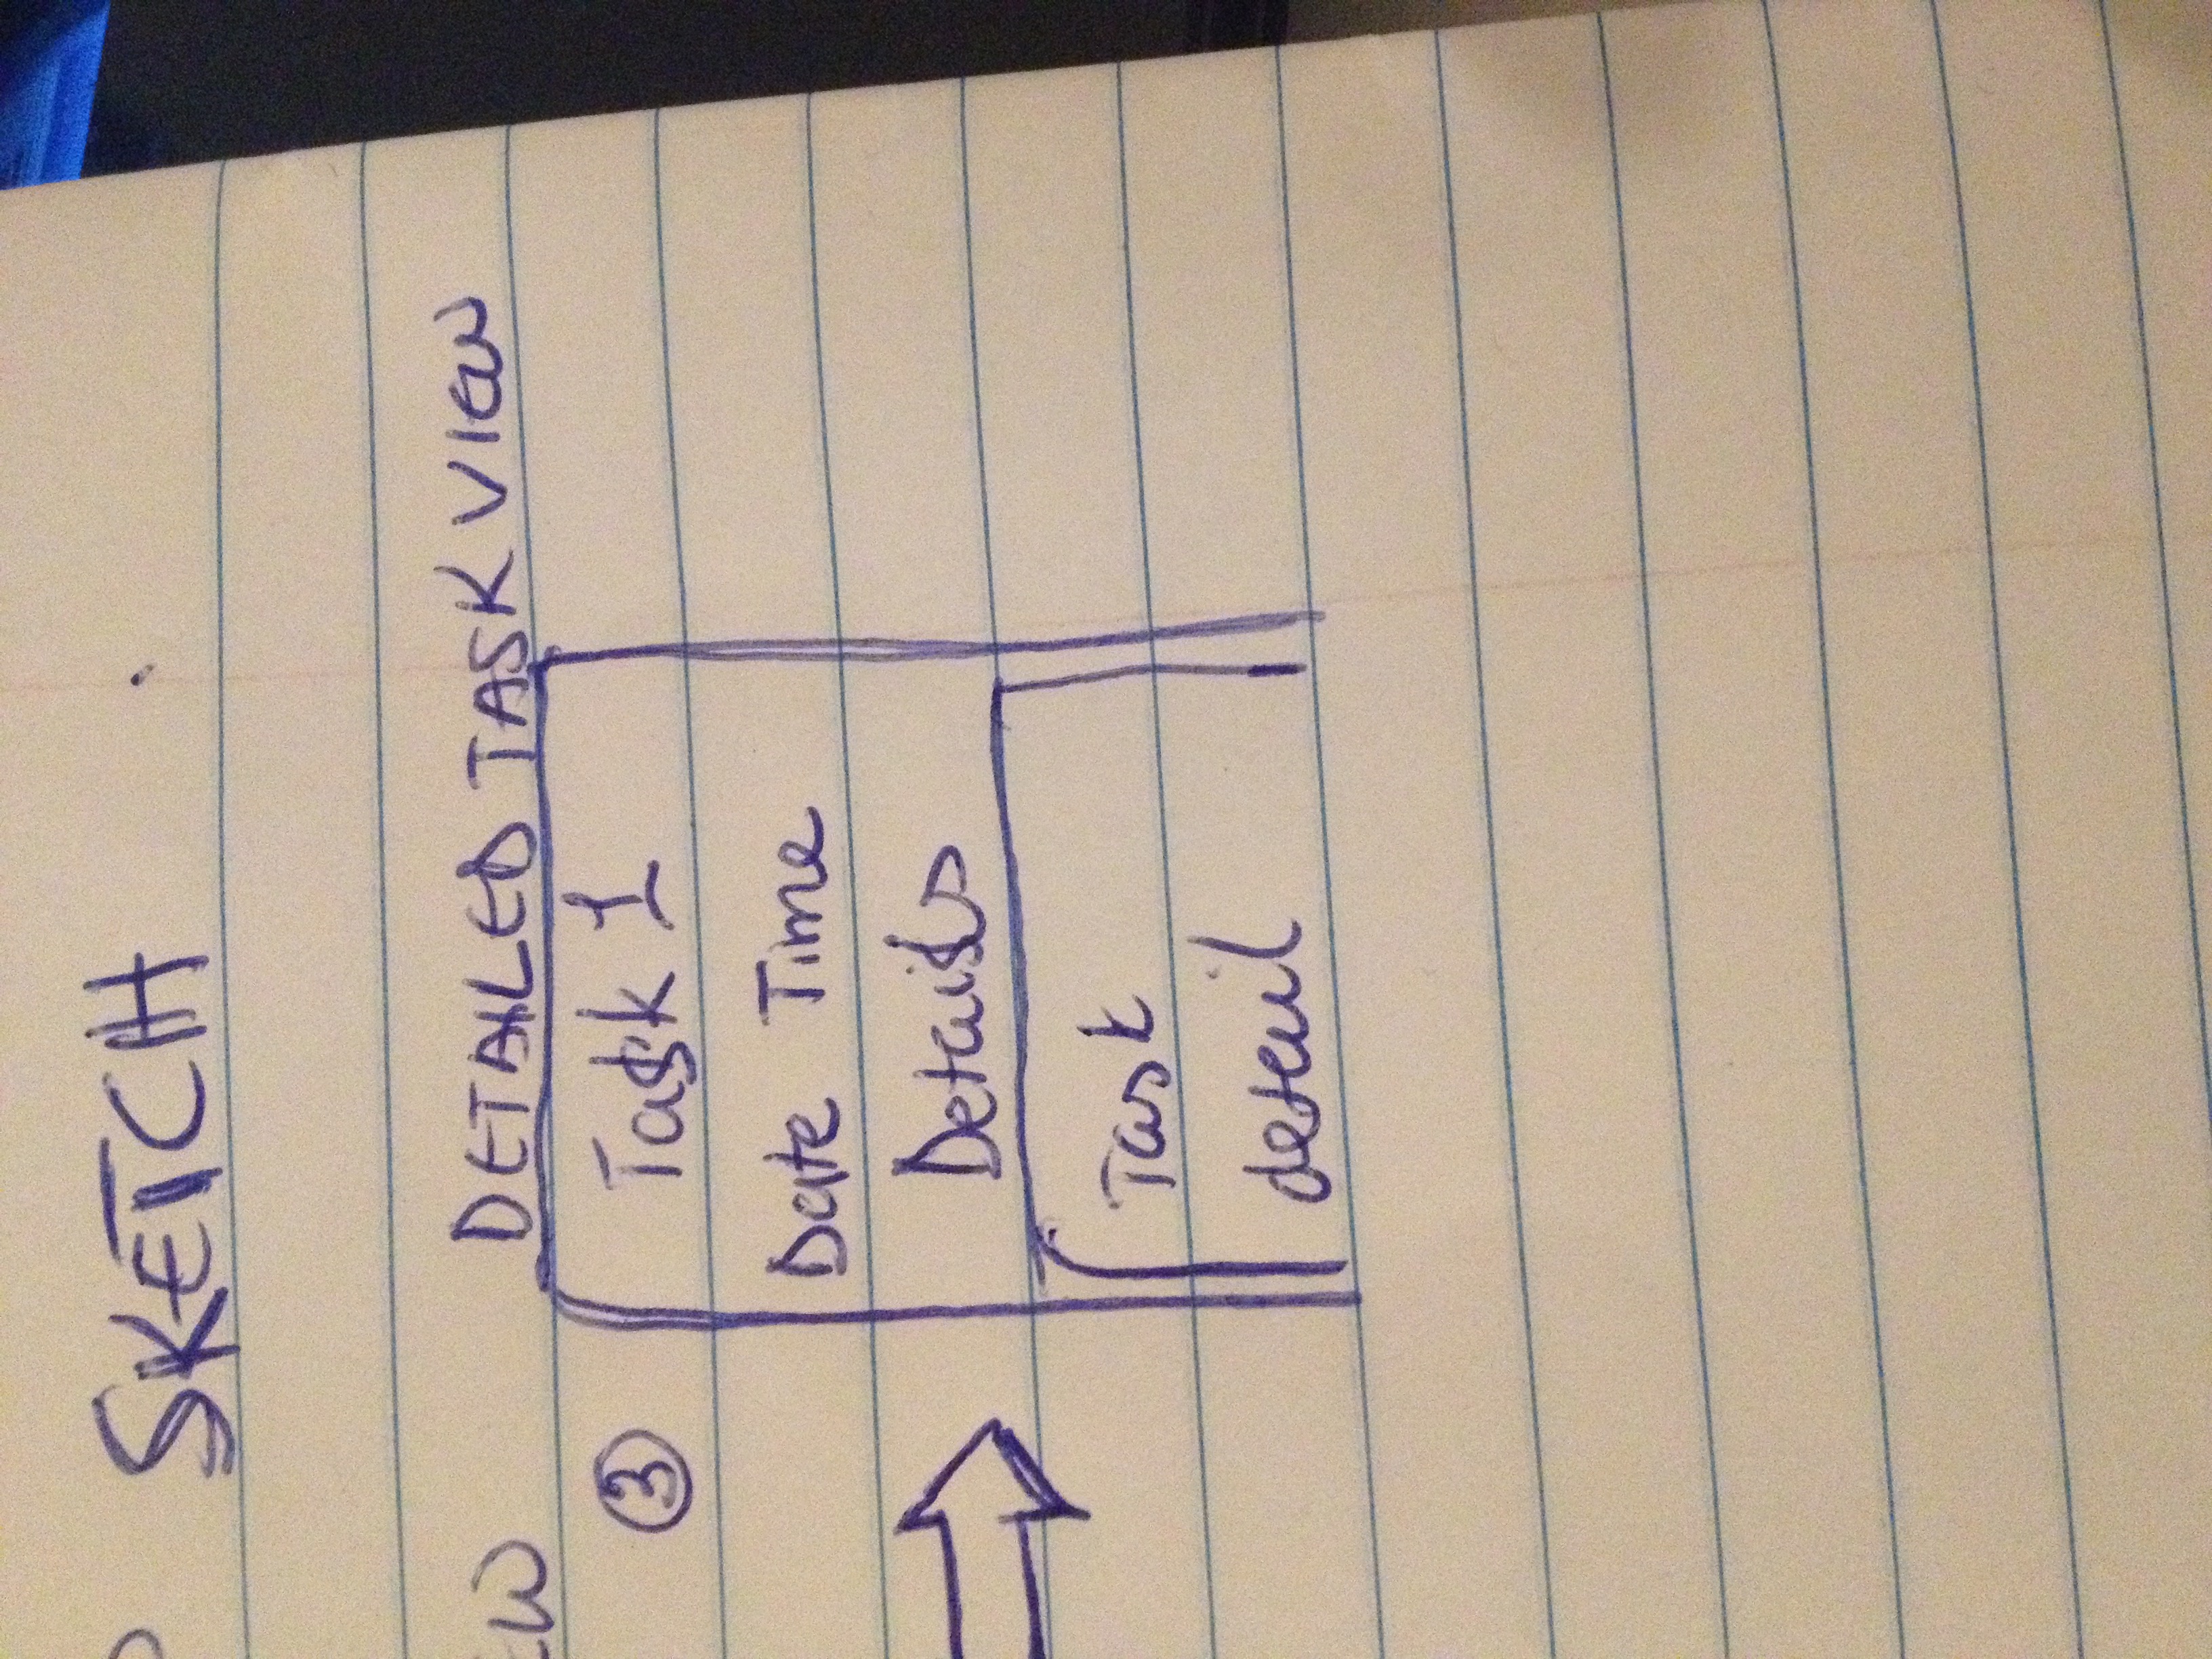 SKETCH
DETAILED TASK VIEW
3
Task 1
Date Time
Details
Task
detail